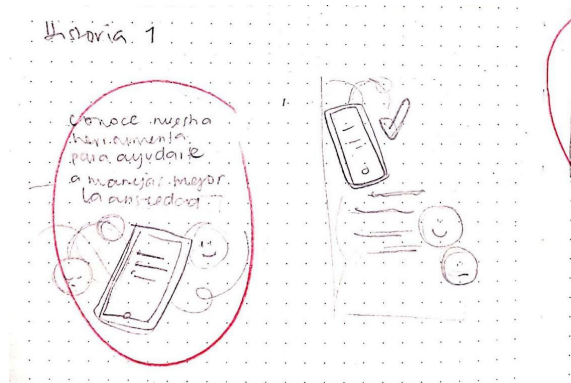 Historia 1
conoce nuestra
herramienta
para ayudarte
a manejar mejor
la ansiedad